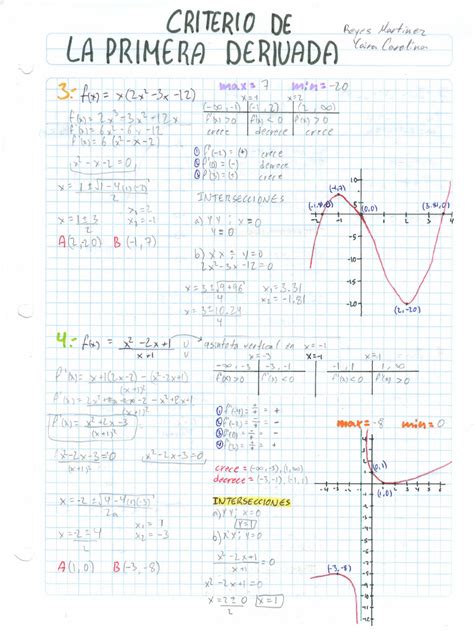 CRITERIO DE
LA PRIMERA DERIVADA
Reyes Martinez
Yaira Carolina
3.- f(x) = x(2x²-3x-12)
f(x) = 2x³-3x²-12x
f'(x) = 6x²-6x-12
f'(x) = 6(x²-x-2)
x²-x-2=0
x = 2
x = -1
A(2,-20) B(-1,7)
max = 7 min = -20
x=-1 x=2
(-∞,-1) (-1,2) (2,∞)
f'(x)>0 f'(x)<0 f'(x)>0
crece decrece crece
① f'(-2) = (+) crece
② f'(0) = (-) decrece
③ f'(3) = (+) crece
INTERSECCIONES
a) YY ; x=0
y=0
b) XX ; y=0
2x²-3x-12=0
x = 3±√9+96
4
x₂= 3.31
x₃= -1.81
x = 3±10.24
4
(-1,7)
(-1.81,0)
(0,0)
(3.31,0)
(2,-20)
4.- f(x) = x²-2x+1
x+1
asíntota vertical en x=-1
f'(x) = x+1(2x-2)-(x²-2x+1)
(x+1)²
f'(x) = x²+2x-3
(x+1)²
x²-2x-3=0
x = -2±4
2
x₁ = 1
x₂ = -3
A(1,0) B(-3,-8)
x=-3 x=-1 x=1
-∞,-3 -3,-1 -1,1 1,∞
f'(x)>0 f'(x)<0 f'(x)<0 f'(x)>0
crece = (-∞,-3),(1,∞)
decrece = (-3,-1),(-1,1)
INTERSECCIONES
a) YY; x=0
y=1
b) XX; y=0
x²-2x+1 = 0
x+1
x²-2x+1=0
x = 2±0
2
x=1
max = -8 min = 0
(0,1)
(1,0)
(-3,-8)